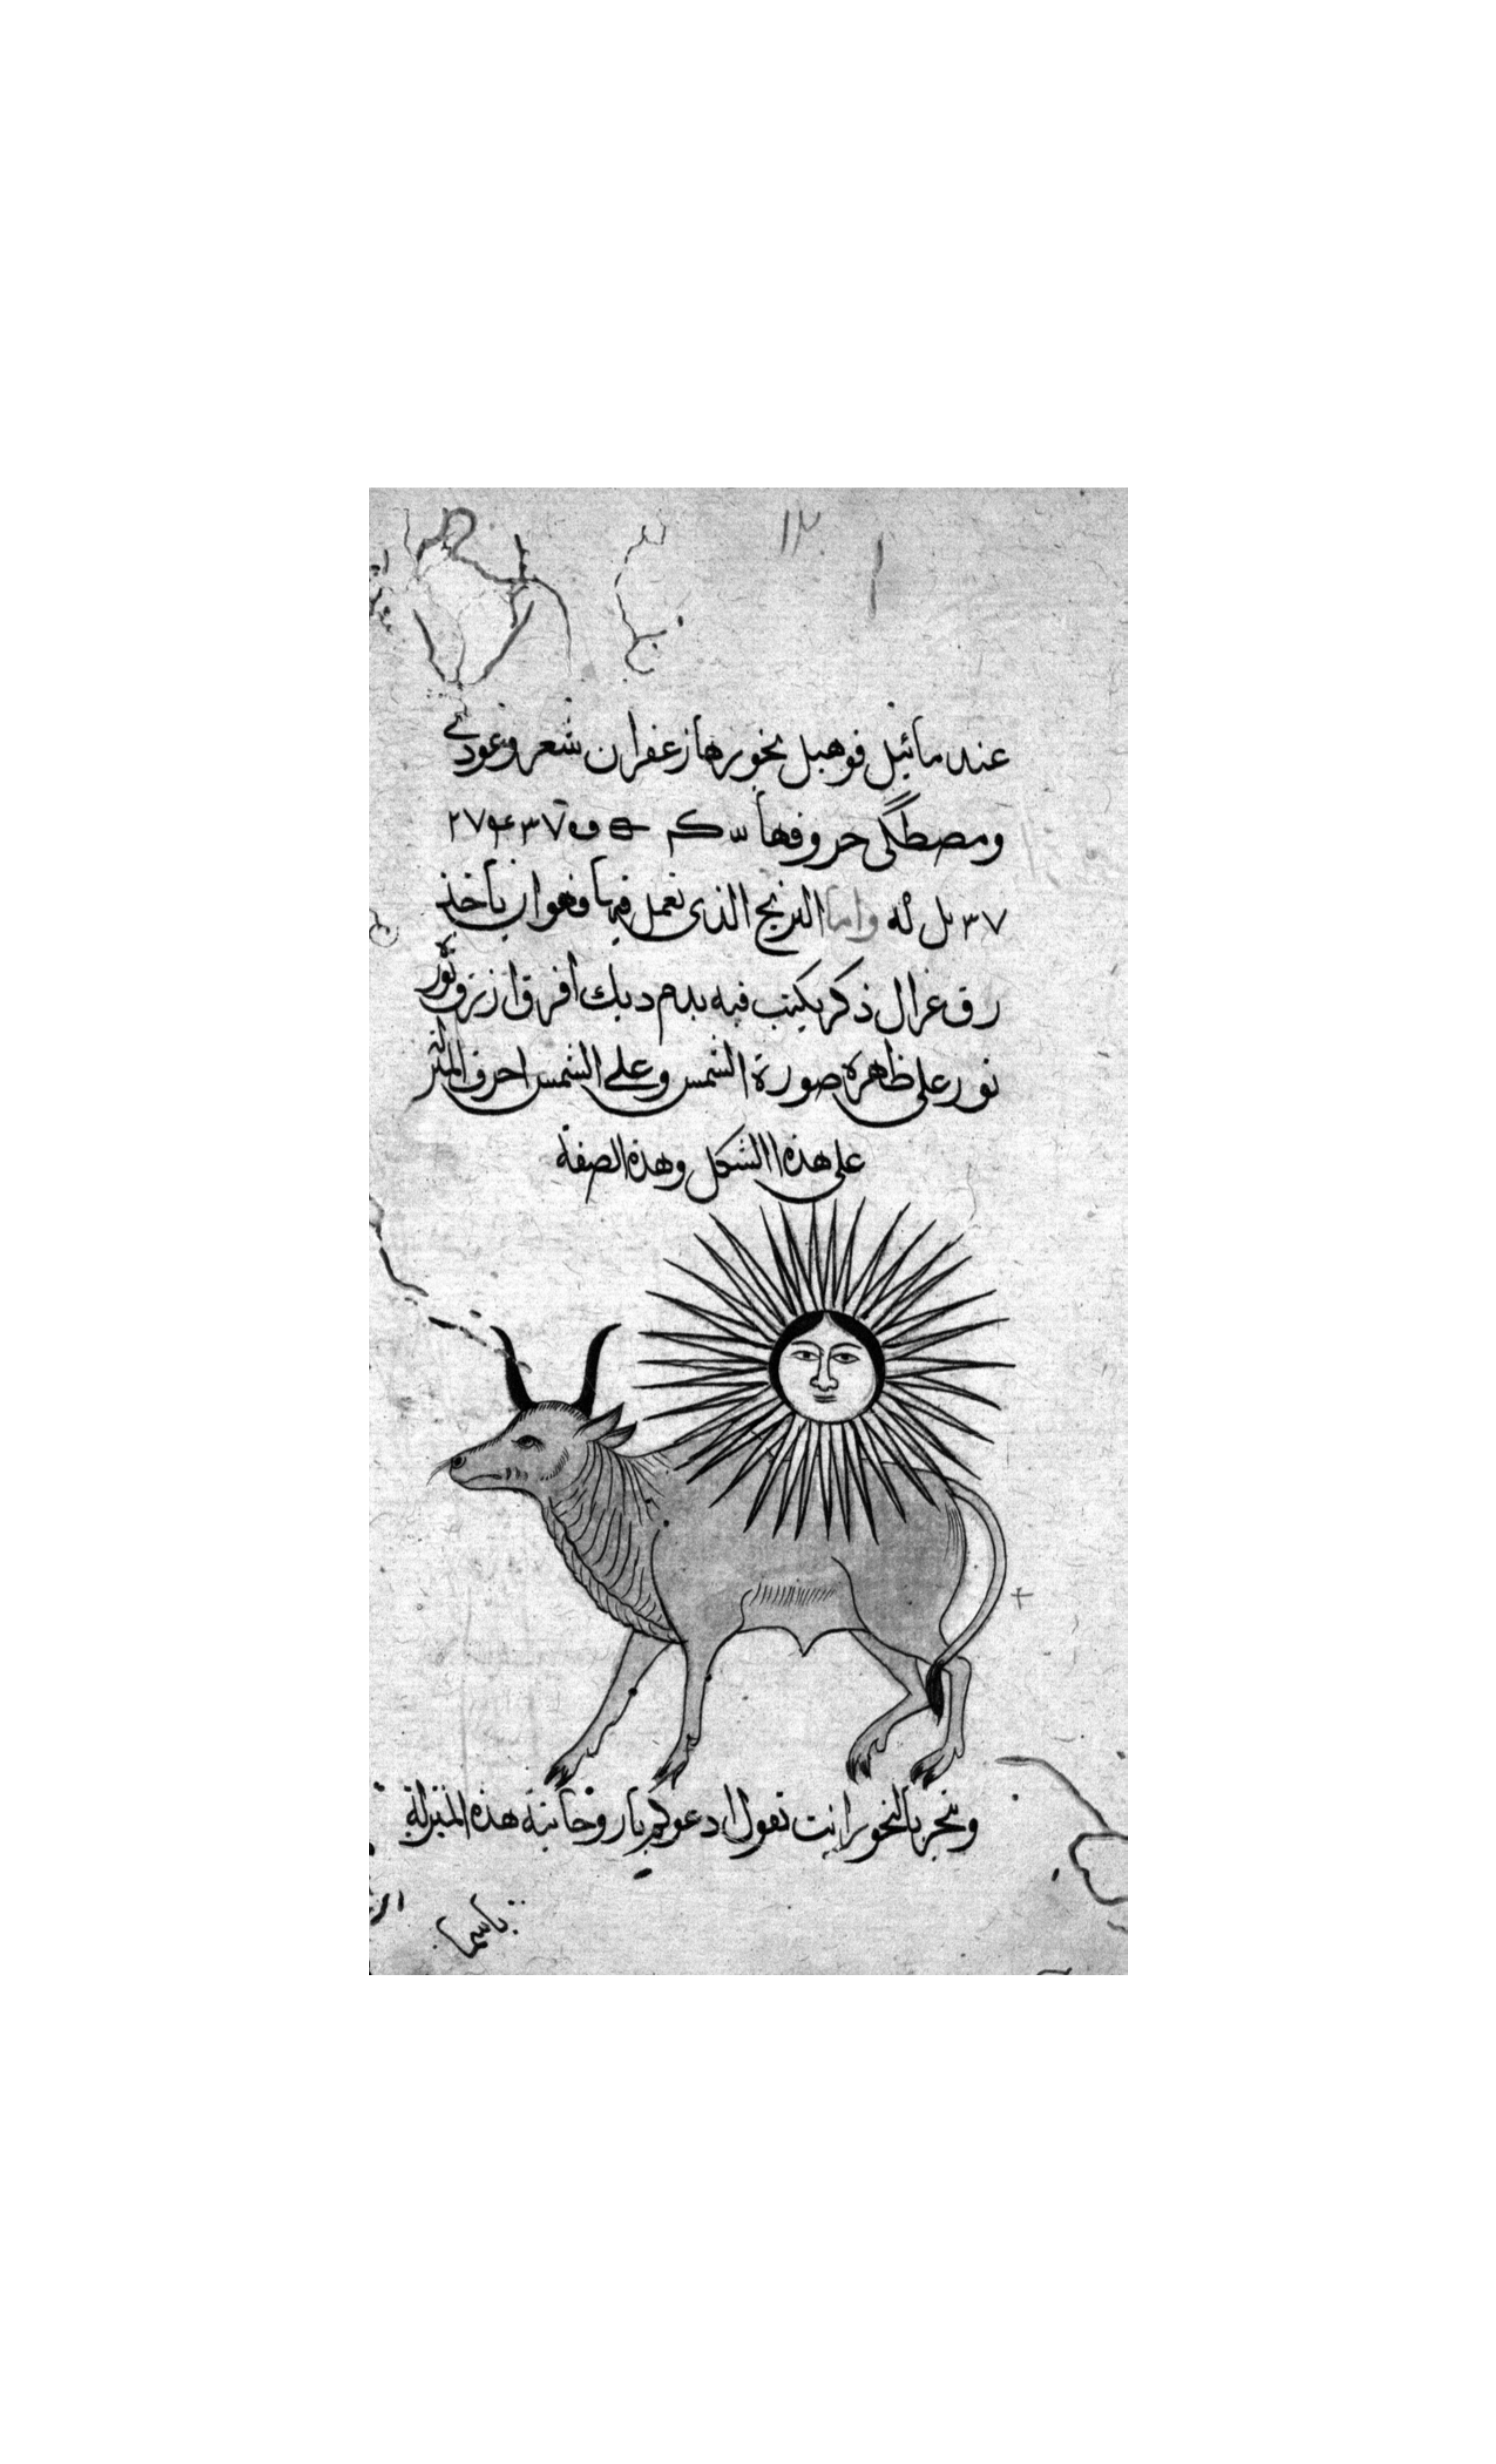 ١٣
عندمائيل فوهبل بخورها زعفران شعر وعود ني
ومصطكى حروفها
واما النيرنج الذى تعمل فيها فهو ان ياخذ
رق غزال ذكر يكتب فيه بدم ديك افرق ازرق ثور
ثور على ظهره صورة الشمس وعلى الشمس احرف المنزلة
على هذا الشكل وهذه الصفة
وتبخر بالبخور وانت تقول ادعوكم يا روحانية هذه المنزلة
باسما